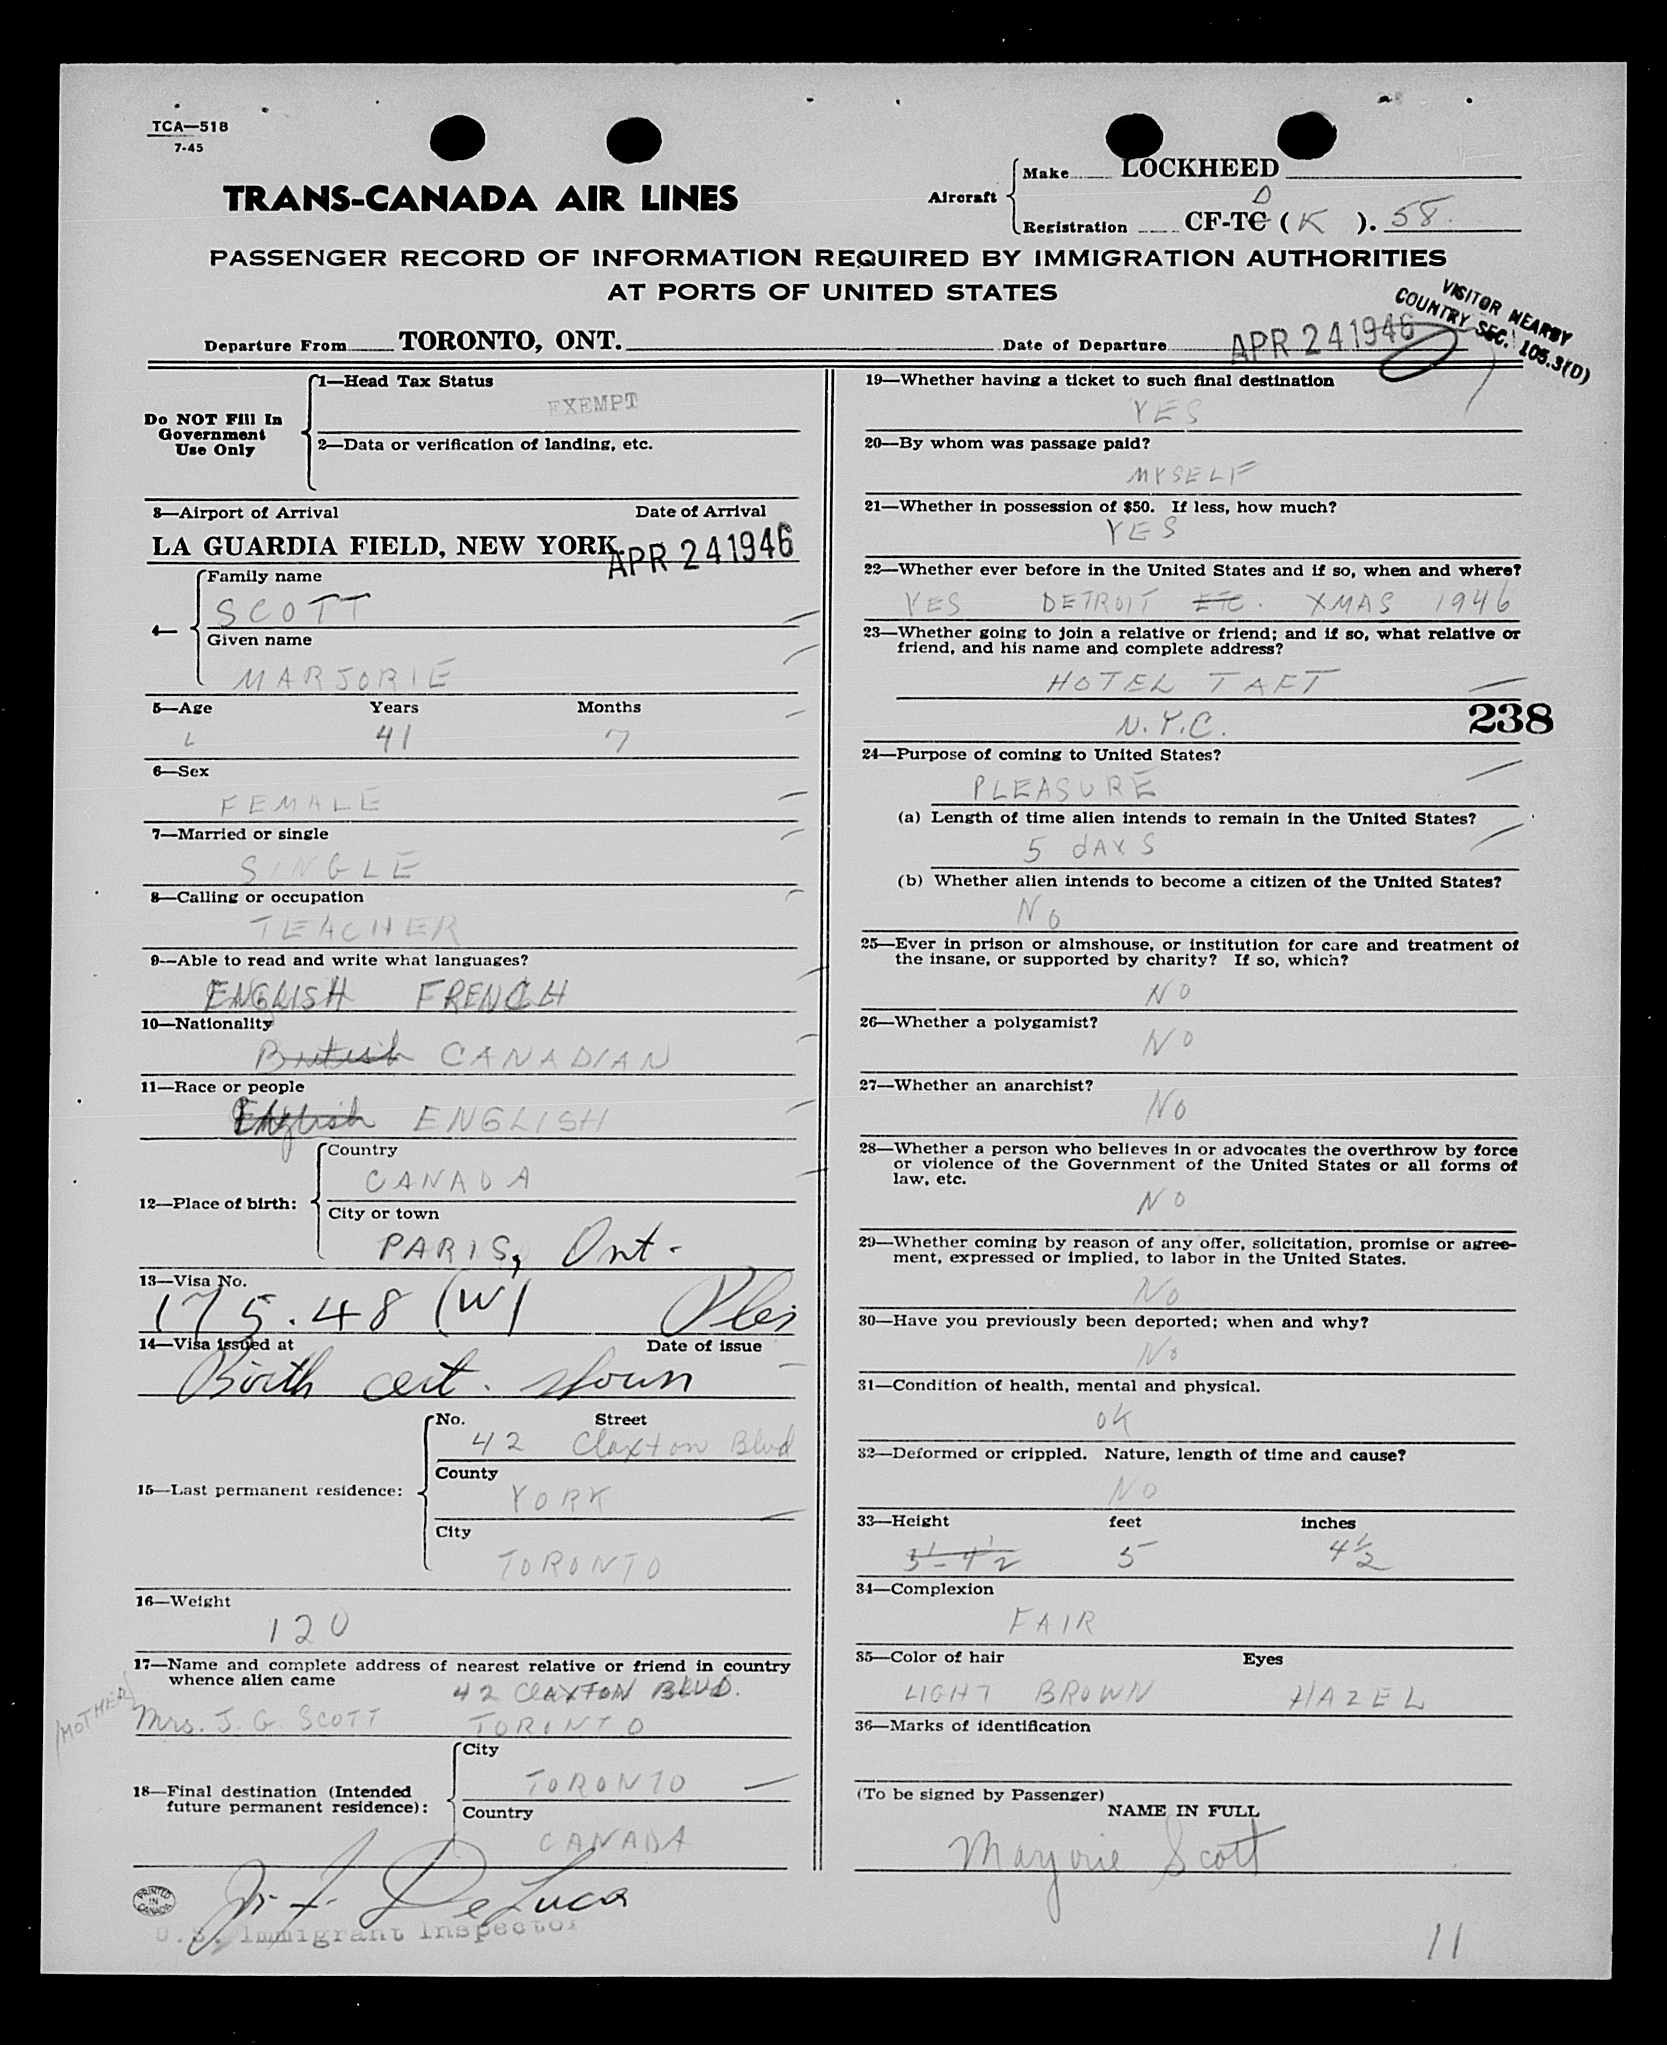 TCA—518
7-45
TRANS-CANADA AIR LINES
Aircraft
Make LOCKHEED
D
Registration CF-TC (K). 58.
PASSENGER RECORD OF INFORMATION REQUIRED BY IMMIGRATION AUTHORITIES
AT PORTS OF UNITED STATES
VISITOR NEARBY
COUNTRY SEC. 105.3(D)
Departure From TORONTO, ONT. Date of Departure APR 24 1946
Do NOT Fill In
Government
Use Only
1—Head Tax Status
EXEMPT
2—Data or verification of landing, etc.
3—Airport of Arrival Date of Arrival
LA GUARDIA FIELD, NEW YORK. APR 24 1946
4—
Family name
SCOTT
Given name
MARJORIE
5—Age Years Months
41 7
6—Sex
FEMALE
7—Married or single
SINGLE
8—Calling or occupation
TEACHER
9—Able to read and write what languages?
ENGLISH FRENCH
10—Nationality
British CANADIAN
11—Race or people
English ENGLISH
12—Place of birth:
Country
CANADA
City or town
PARIS, Ont.
13—Visa No.
175.48 (W)
14—Visa issued at Date of issue
Birth cert. shown
15—Last permanent residence:
No. Street
42 Claxton Blvd
County
YORK
City
TORONTO
16—Weight
120
17—Name and complete address of nearest relative or friend in country
whence alien came
42 CLAXTON BLVD.
(MOTHER)
Mrs. J. G. SCOTT TORONTO
18—Final destination (Intended
future permanent residence):
City
TORONTO
Country
CANADA
DeLuca
U.S. Immigrant Inspector
PRINTED
IN
CANADA
19—Whether having a ticket to such final destination
YES
20—By whom was passage paid?
MYSELF
21—Whether in possession of $50. If less, how much?
YES
22—Whether ever before in the United States and if so, when and where?
YES DETROIT ETC. XMAS 1946
23—Whether going to join a relative or friend; and if so, what relative or
friend, and his name and complete address?
HOTEL TAFT
N.Y.C.
238
24—Purpose of coming to United States?
PLEASURE
(a) Length of time alien intends to remain in the United States?
5 dAYS
(b) Whether alien intends to become a citizen of the United States?
No
25—Ever in prison or almshouse, or institution for care and treatment of
the insane, or supported by charity? If so, which?
NO
26—Whether a polygamist?
NO
27—Whether an anarchist?
No
28—Whether a person who believes in or advocates the overthrow by force
or violence of the Government of the United States or all forms of
law, etc.
NO
29—Whether coming by reason of any offer, solicitation, promise or agree-
ment, expressed or implied, to labor in the United States.
No
30—Have you previously been deported; when and why?
No
31—Condition of health, mental and physical.
OK
32—Deformed or crippled. Nature, length of time and cause?
NO
33—Height feet inches
5'-4 1/2 5 4 1/2
34—Complexion
FAIR
35—Color of hair Eyes
LIGHT BROWN HAZEL
36—Marks of identification
(To be signed by Passenger)
NAME IN FULL
Marjorie Scott
11